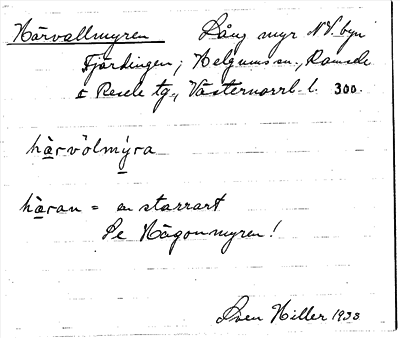 Härvallmyren Lång myr NV. byn
Fjärdingen; Helgums sn., Ramsele
& Resele tg., Västernorrl. l. 300.
härvòlmýra
häran = en starrart
Se Hägonmyren!
Sven Hiller 1933